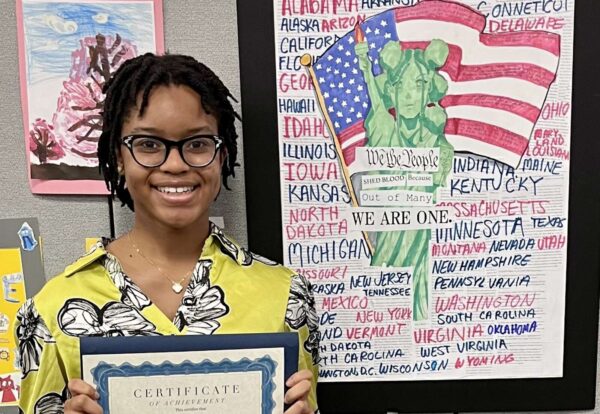 ALABAMA ARKANSAS CONNECTICUT
ALASKA ARIZONA DELAWARE
CALIFORNIA
HAWAII
IDAHO
OHIO
ILLINOIS
IOWA
KANSAS
NORTH DAKOTA
MICHIGAN
MARYLAND
LOUISIANA
INDIANA MAINE
KENTUCKY
We the People
SHED BLOOD Because
Out of Many
WE ARE ONE.
MASSACHUSETTS
MINNESOTA TEXAS
MONTANA NEVADA UTAH
NEW HAMPSHIRE
PENNSYLVANIA
MISSOURI
NEW JERSEY
TENNESSEE
MEXICO NEW YORK
VERMONT
WASHINGTON
SOUTH CAROLINA
VIRGINIA OKLAHOMA
WEST VIRGINIA
DAKOTA
CAROLINA
D.C. WISCONSIN WYOMING
CERTIFICATE
OF ACHIEVEMENT
This certifies that